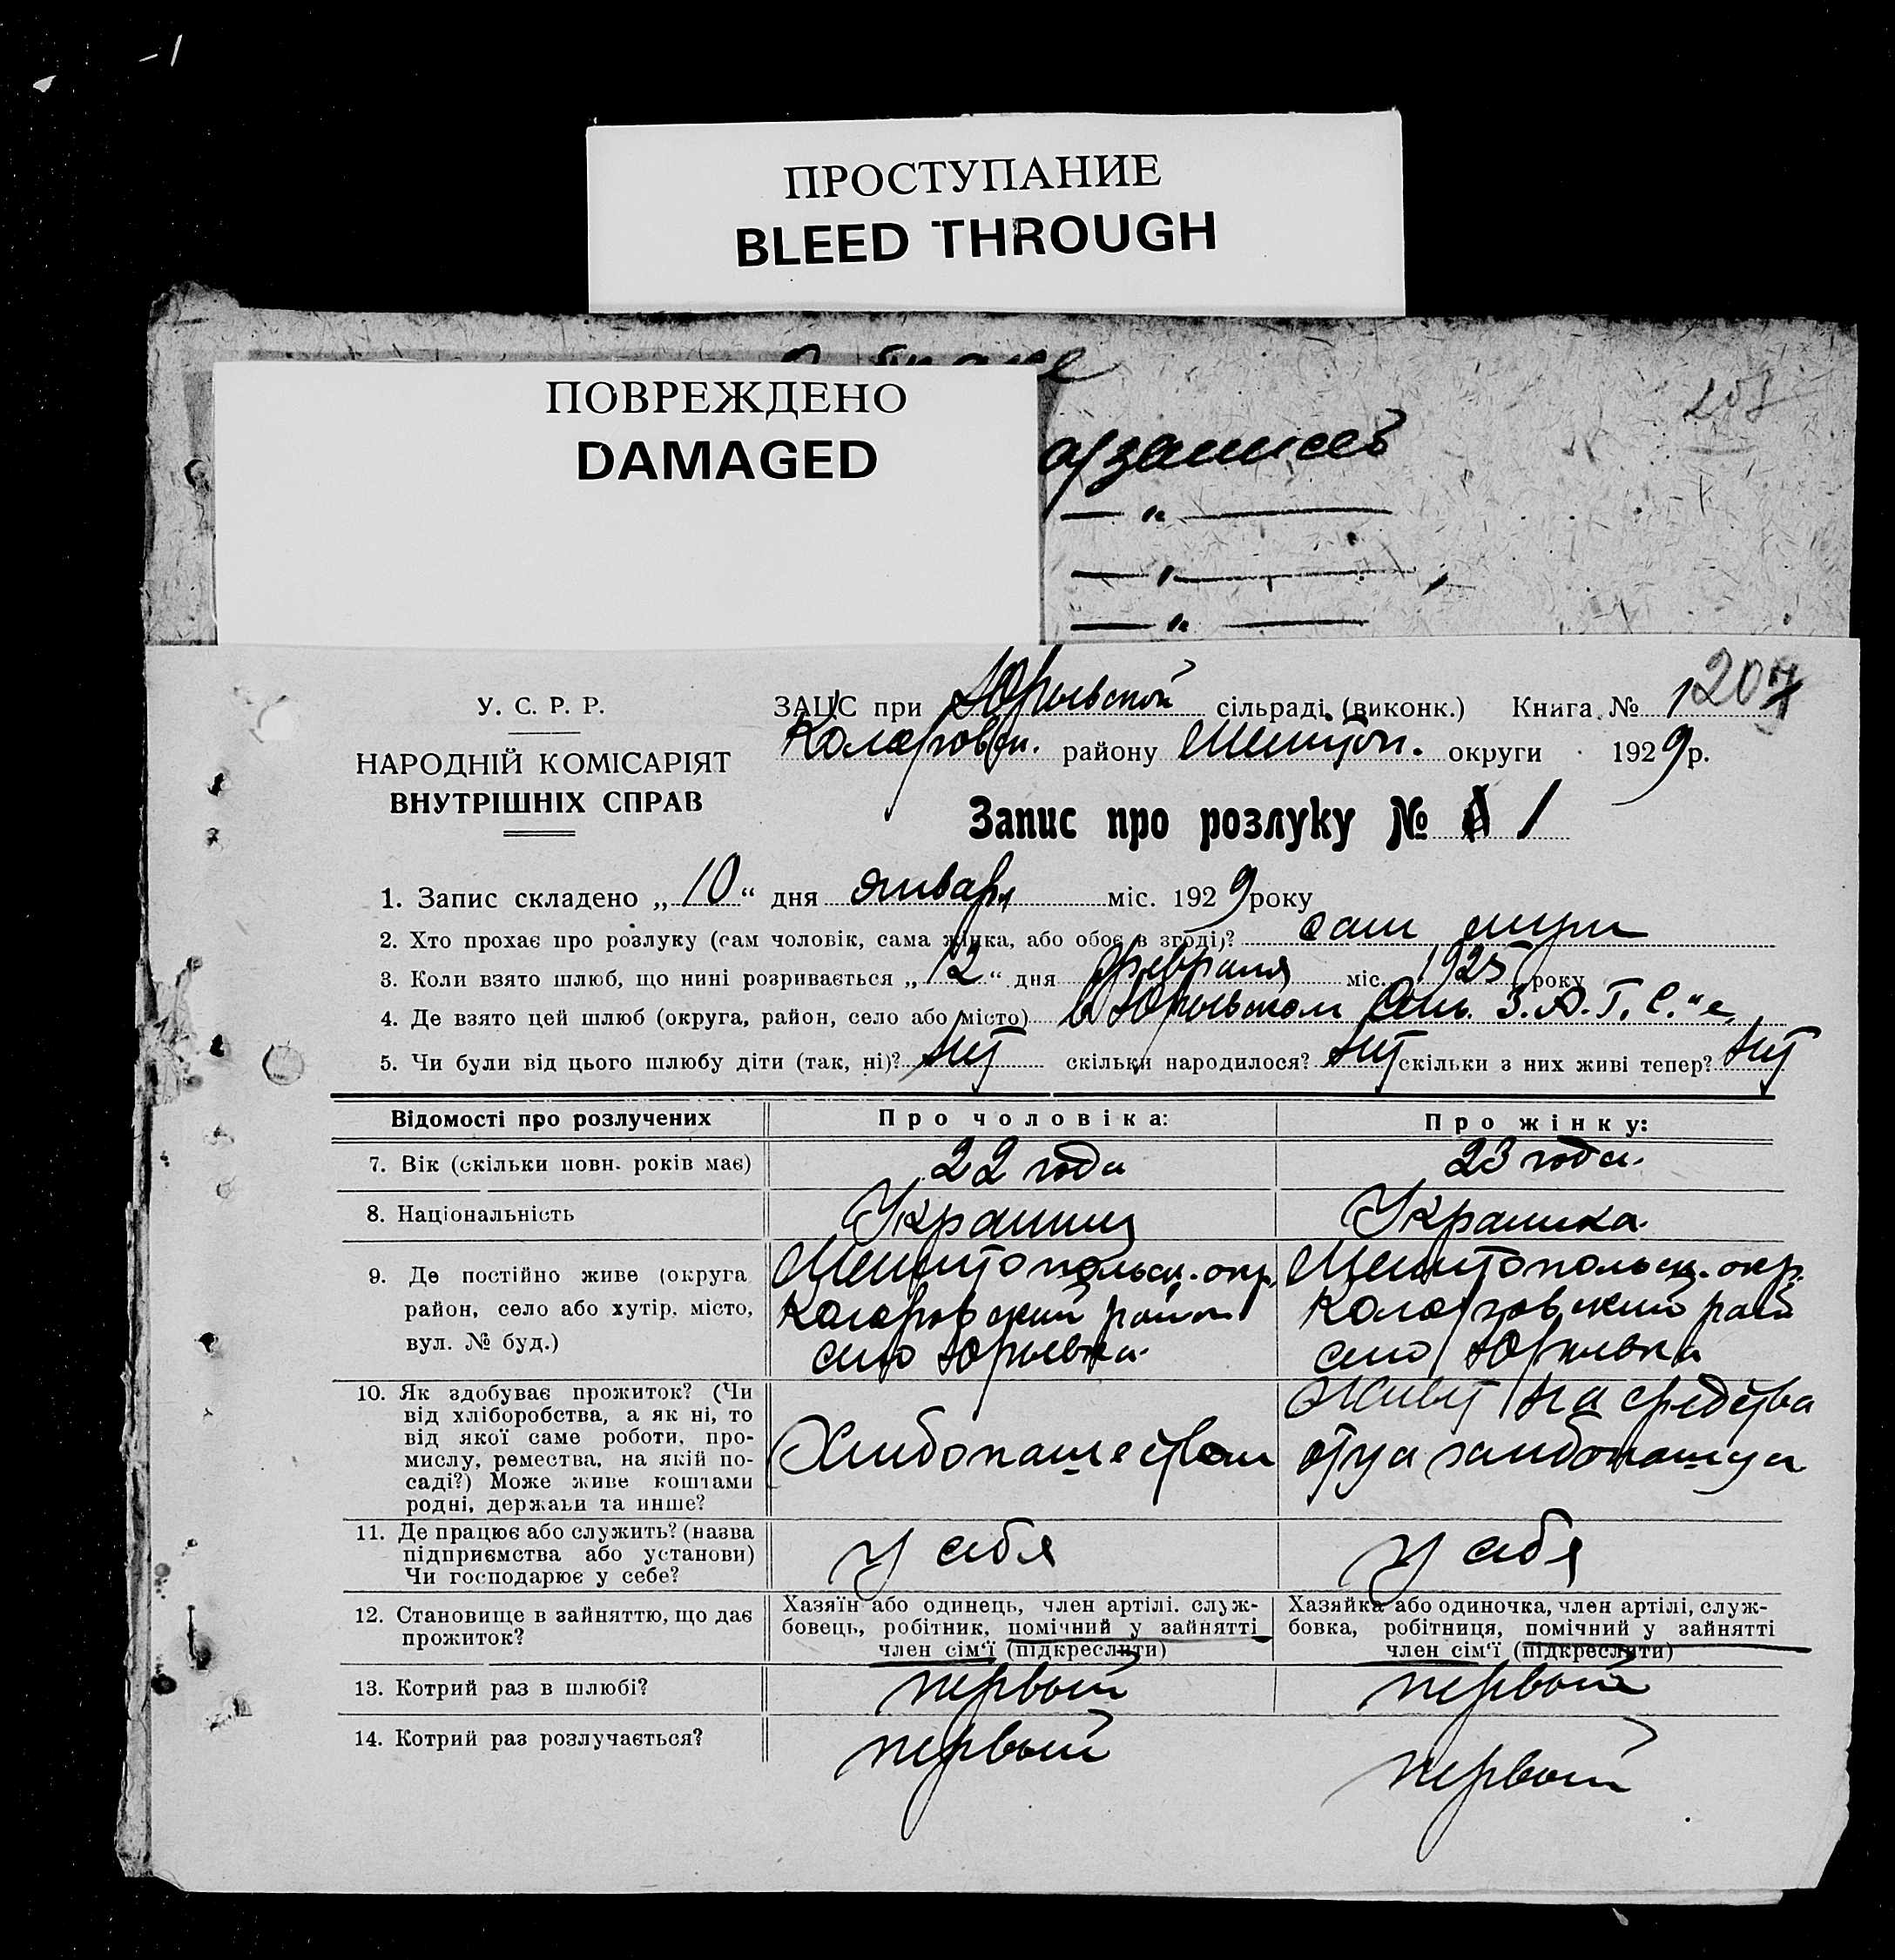 ПРОСТУПАНИЕ
BLEED THROUGH
ПОВРЕЖДЕНО
DAMAGED
У. С. Р. Р.
НАРОДНІЙ КОМІСАРІЯТ
ВНУТРІШНІХ СПРАВ
ЗАПИС при Юрьевской сільраді (виконк.) Книга № 1 207
Коларовск. району Мелитоп. округи 1929 р.
Запис про розлуку № 1
1. Запис складено „ 10 “ дня января міс. 1929 року
2. Хто прохає про розлуку (сам чоловік, сама жінка, або обоє в згоді)? сам муж
3. Коли взято шлюб, що нині розривається „ 12 “ дня февраля міс. 1925 року
4. Де взято цей шлюб (округа, район, село або місто) в Юрьевском З.А.Г.С."е
5. Чи були від цього шлюбу діти (так, ні)? нет скільки народилося? нет скільки з них живі тепер? нет
Відомості про розлучених Про чоловіка: Про жінку:
7. Вік (скільки повн. років має) 22 года 23 года.
8. Національність Украинец Украинка.
9. Де постійно живе (округа
район, село або хутір, місто,
вул. № буд.)
Мелитопольск. окр.
Коларовский район
село Юрьевка.
Мелитопольск. окр.
Коларовский район
село Юрьевка
10. Як здобуває прожиток? (Чи
від хліборобства, а як ні, то
від якої саме роботи, про-
мислу, ремества, на якій по-
саді?) Може живе коштами
родні, держави та инше?
Хлебопашеством
Живет на средства
отца хлебопашца
11. Де працює або служить? (назва
підприємства або установи)
Чи господарює у себе?
У себя
У себя
12. Становище в зайняттю, що дає
прожиток?
Хазяїн або одинець, член артілі. служ-
бовець, робітник, помічний у зайнятті
член сім‘ї (підкреслити)
Хазяйка або одиночка, член артілі, служ-
бовка, робітниця, помічний у зайнятті
член сім‘ї (підкреслити)
13. Котрий раз в шлюбі? первый первый
14. Котрий раз розлучається? первый первый